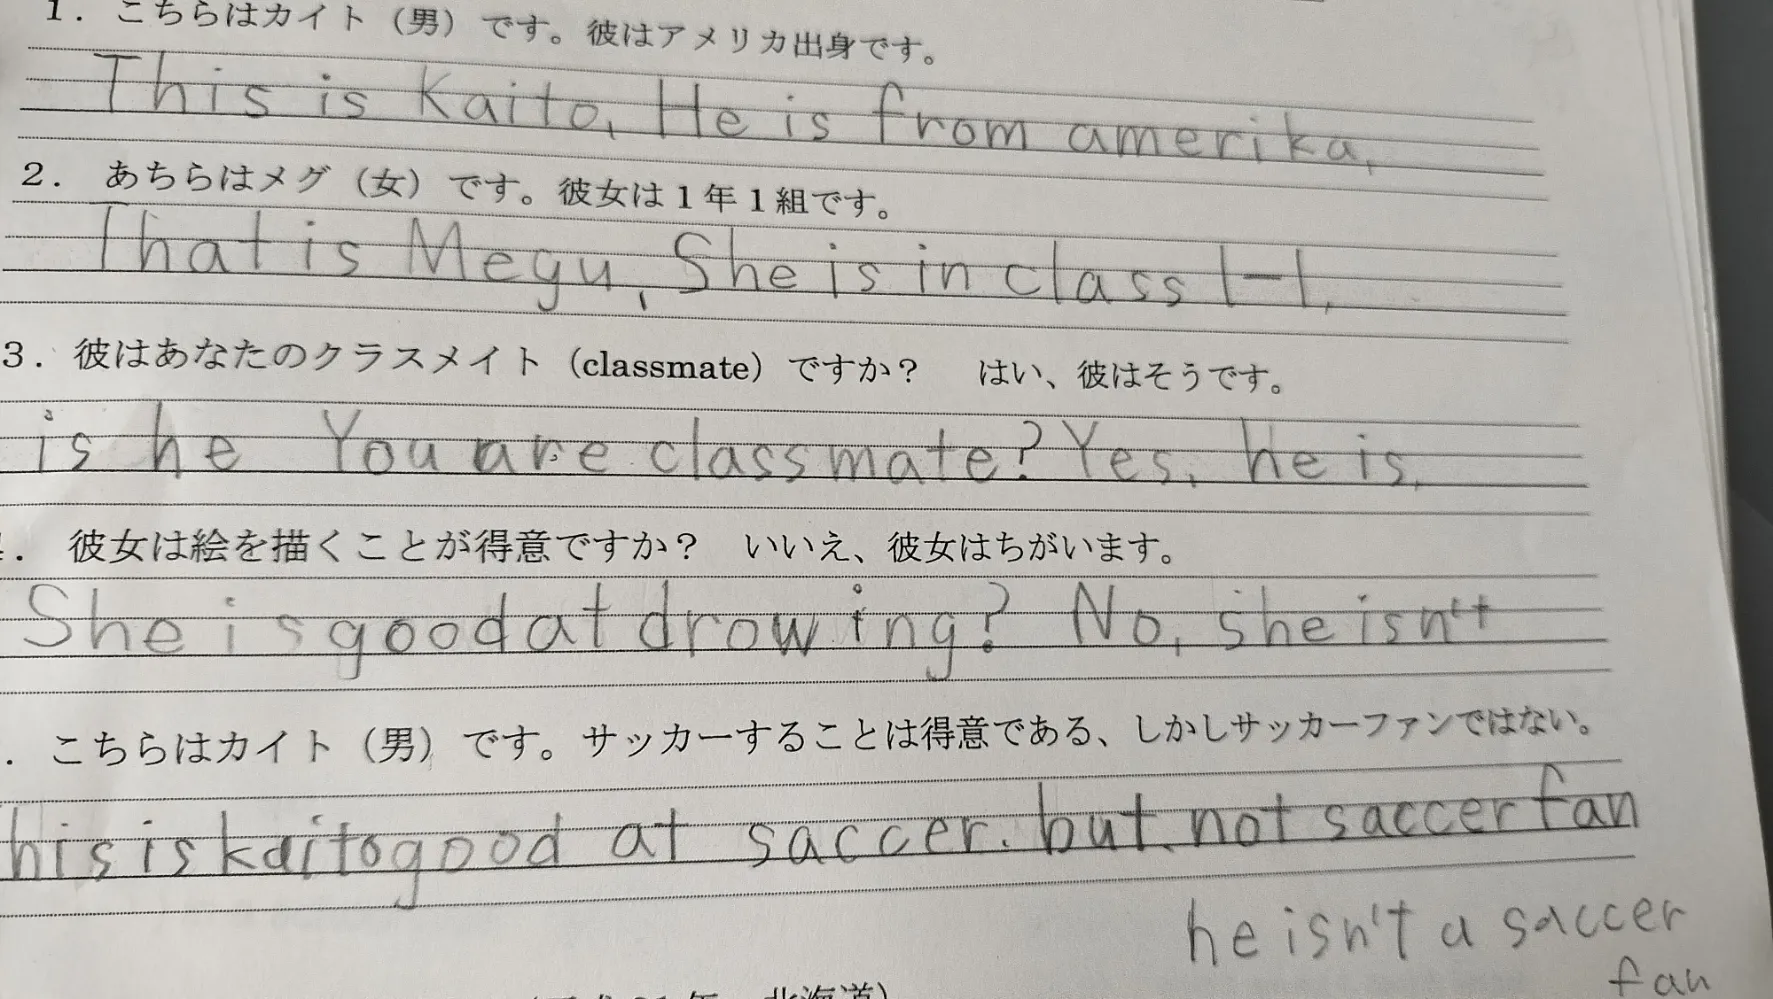 1. こちらはカイト（男）です。彼はアメリカ出身です。
This is Kaito, He is from amerika,
2. あちらはメグ（女）です。彼女は1年1組です。
That is Megu, She is in class 1-1,
3. 彼はあなたのクラスメイト（classmate）ですか？ はい、彼はそうです。
is he You are classmate? Yes, he is,
. 彼女は絵を描くことが得意ですか？ いいえ、彼女はちがいます。
She is good at drowing? No, she isn't
. こちらはカイト（男）です。サッカーすることは得意である、しかしサッカーファンではない。
his is kaito good at saccer. but, not saccer fan
he isn't a saccer
fan